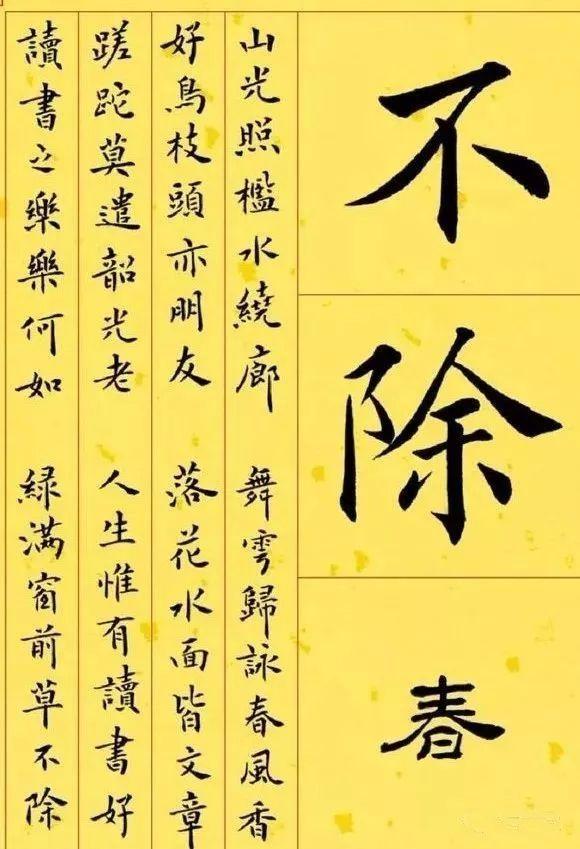 不除
春
山光照檻水繞廊 舞雩歸詠春風香
好鳥枝頭亦朋友 落花水面皆文章
蹉跎莫遣韶光老 人生惟有讀書好
讀書之樂樂何如 緑滿窗前草不除